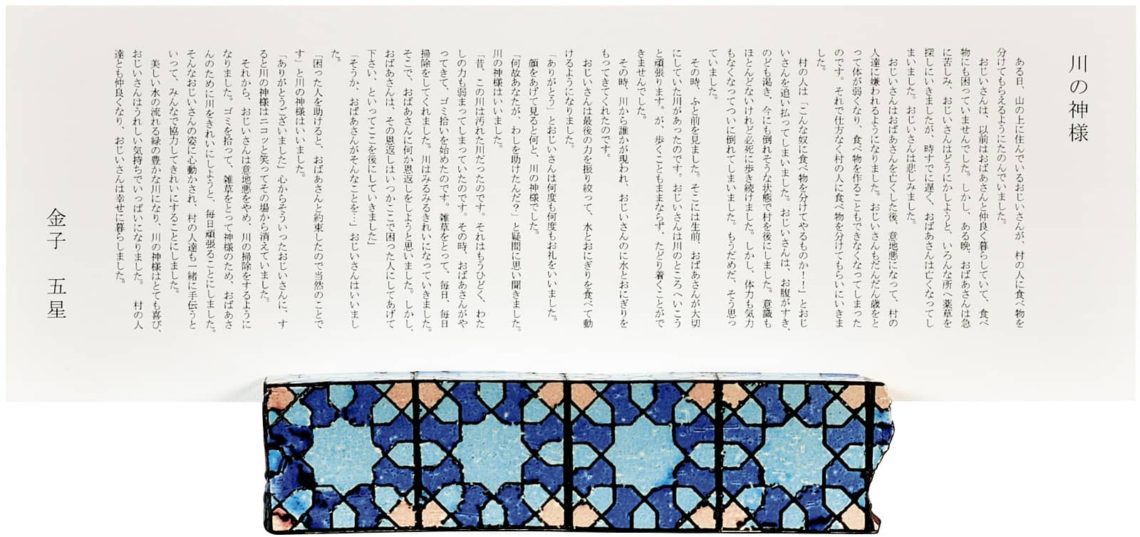 川の神様
ある日、山の上に住んでいるおじいさんが、村の人に食べ物を
分けてもらえるようにたのんでいました。
おじいさんは、以前はおばあさんと仲良く暮らしていて、食べ
物にも困っていませんでした。しかし、ある晩、おばあさんは急
に苦しみ、おじいさんはどうにかしようと、いろんな所へ薬草を
探しにいきましたが、時すでに遅く、おばあさんは亡くなってし
まいました。おじいさんは悲しみました。
おじいさんはおばあさんを亡くした後、意地悪になって、村の
人達に嫌われるようになりました。おじいさんもだんだん歳をと
って体が弱くなり、食べ物を作ることもできなくなってしまった
のです。それで仕方なく村の人に食べ物を分けてもらいにいきま
した。
村の人は「こんな奴に食べ物を分けてやるものか！！」とおじ
いさんを追い払ってしまいました。おじいさんは、お腹がすき、
のども渇き、今にも倒れそうな状態で村を後にしました。意識も
ほとんどないけれど必死に歩き続けました。しかし、体力も気力
もなくなってついに倒れてしまいました。もうだめだ、そう思っ
ていました。
その時、ふと前を見ました。そこには生前、おばあさんが大切
にしていた川があったのです。おじいさんは川のところへいこう
と頑張ります。が、歩くこともままならず、たどり着くことがで
きませんでした。
その時、川から誰かが現われ、おじいさんのに水とおにぎりを
もってきてくれたのです。
おじいさんは最後の力を振り絞って、水とおにぎりを食べて動
けるようになりました。
「ありがとう」とおじいさんは何度も何度もお礼をいいました。
顔をあげて見ると何と、川の神様でした。
「何故あなたが、わしを助けたんだう」と疑問に思い聞きました。
川の神様はいいました。
「昔、この川は汚れた川だったのです。それはもうひどく、わた
しの力も弱まってしまっていたのです。その時、おばあさんがや
ってきて、ゴミ拾いを始めたのです。雑草をとって、毎日、毎日
掃除をしてくれました。川はみるみるきれいになっていきました。
そこで、おばあさんに何か恩返しをしようと思いました。しかし、
おばあさんは、その恩返しはいつかここで困った人にしてあげて
下さい、といってここを後にしていきました」
「そうか、おばあさんがそんなことを…」おじいさんはいいまし
た。
「困った人を助けると、おばあさんと約束したので当然のことで
す」と川の神様はいいました。
「ありがとうございました」心からそういったおじいさんに、す
ると川の神様はニコッと笑ってその場から消えていました。
それから、おじいさんは意地悪をやめ、川の掃除をするように
なりました。ゴミを拾って、雑草をとって神様のため、おばあさ
んのために川をきれいにしようと、毎日頑張ることにしました。
そんなおじいさんの姿に心動かされ、村の人達も一緒に手伝うと
いって、みんなで協力してきれいにすることにしました。
美しい水の流れる緑の豊かな川になり、川の神様はとても喜び、
おじいさんはうれしい気持ちでいっぱいになりました。村の人
達とも仲良くなり、おじいさんは幸せに暮らしました。
金子　五星